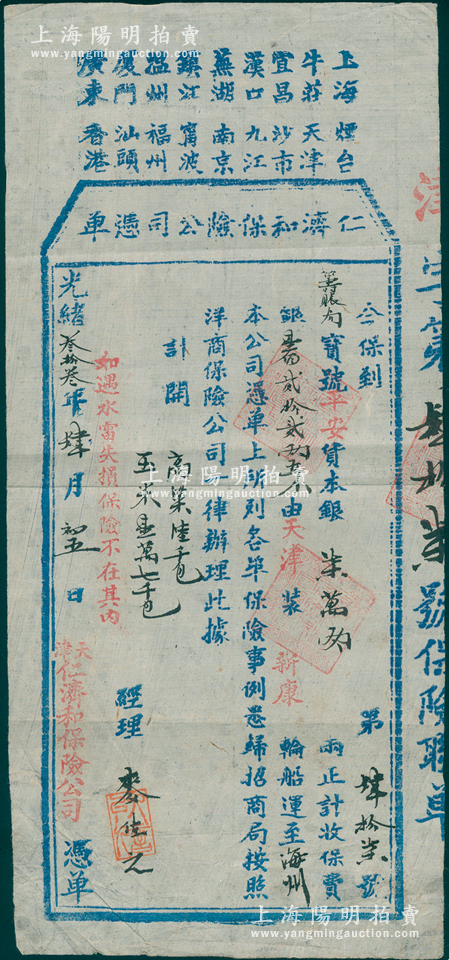 上海陽明拍賣
www.yangmingauction.com
上海 煙台
牛莊 天津
宜昌 沙市
漢口 九江
蕪湖 南京
鎮江 甯波
溫州 福州
廈門 汕頭
廣東 香港
仁濟和保險公司憑單
第肆拾柒號
今保到
籌賑局寶號平安貨本銀柒萬兩
兩正計收保費
銀由天津裝新康輪船運至海州
本公司憑單上所列各等保險事例悉歸招商局按照
洋商保險公司一律辦理此據
計開
陸千包
玉米
七千包
經理
如遇水當失損保險不在其內
光緒叁拾叁年肆月初五日
天津仁濟和保險公司憑單
字第
拾柒號保險聯單
上海陽明拍賣
www.yangmingauction.com
上海陽明拍賣
www.yangmingauction.com